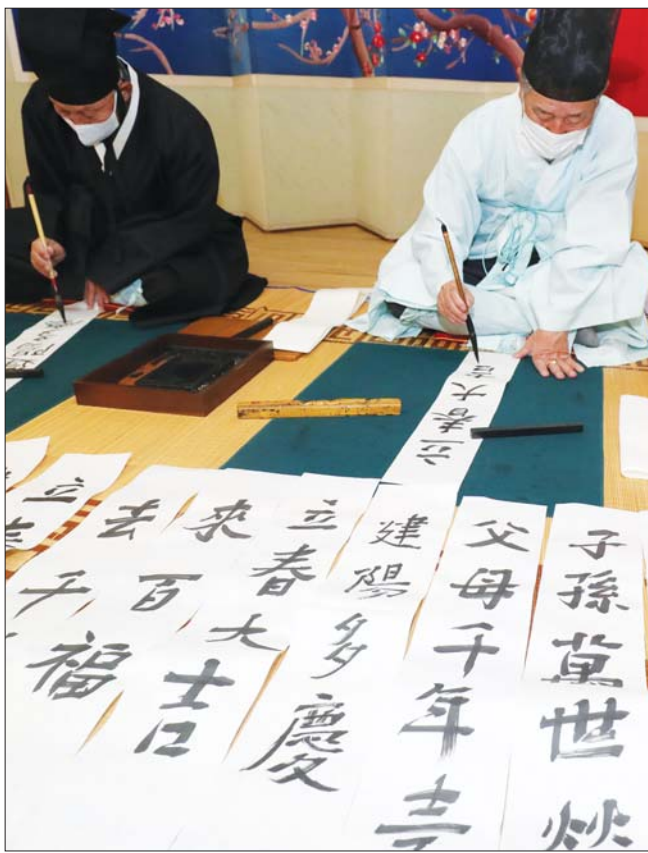 子孫萬世
父母千年
建陽多慶
立春大吉
來百福
去千
立
立春大吉